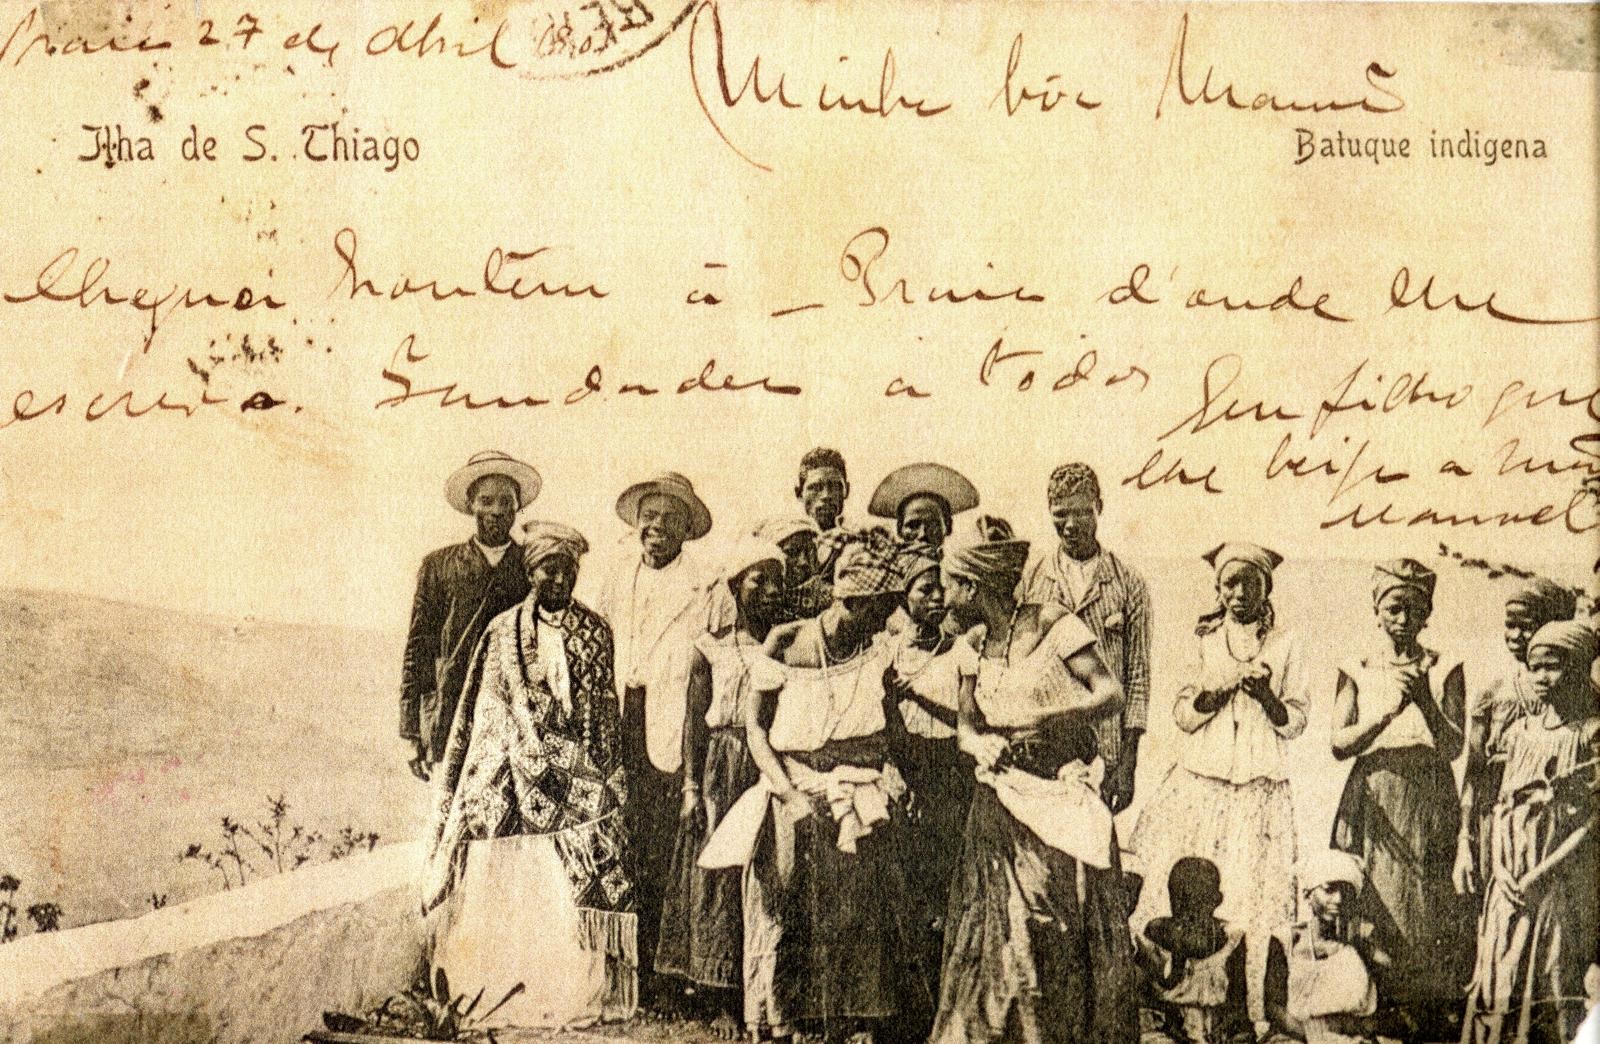 Praia 27 de Abril
Minha bôa Mamã
Ilha de S. Thiago
Batuque indigena
Cheguei hontem á Praia d'onde lhe
escrevo. Saudades a todos Seu filho que
lhe beija a mão
Manuel